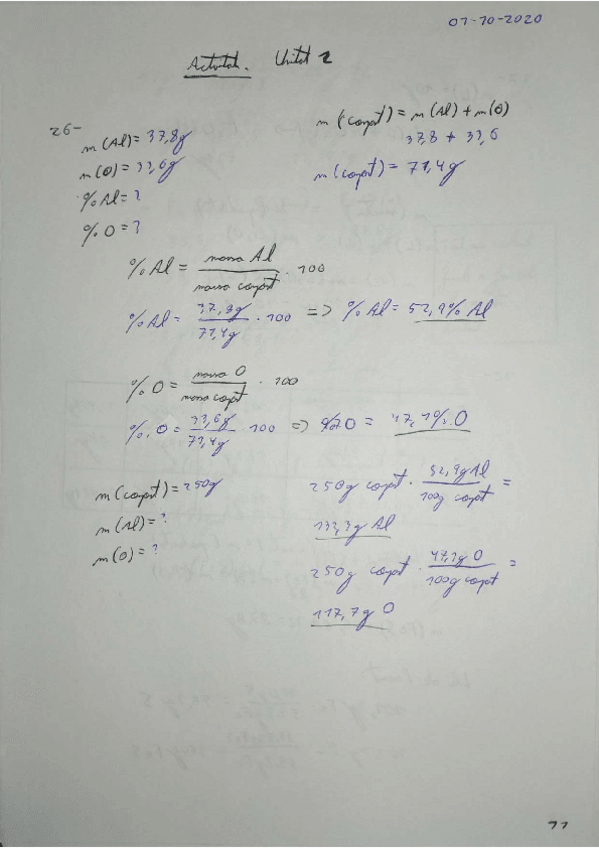 07-10-2020
Activitats. Unitat 2
26-
m(Al)= 37,8g
m(O)= 33,6g
%Al= ?
%O= ?
m(compost)= m(Al)+m(O)
37,8 + 33,6
m(compost)= 71,4g
%Al = massa Al / massa compost · 100
%Al= 37,8g / 71,4g · 100 => %Al= 52,9% Al
%O = massa O / massa compst · 100
%O = 33,6g / 71,4g · 100 => %O = 47,1%O
m(compost)= 250g
m(Al)= ?
m(O)= ?
250g compst · 52,9g Al / 100g compst =
132,3g Al
250g compst · 47,1g O / 100g compst =
117,7g O
11